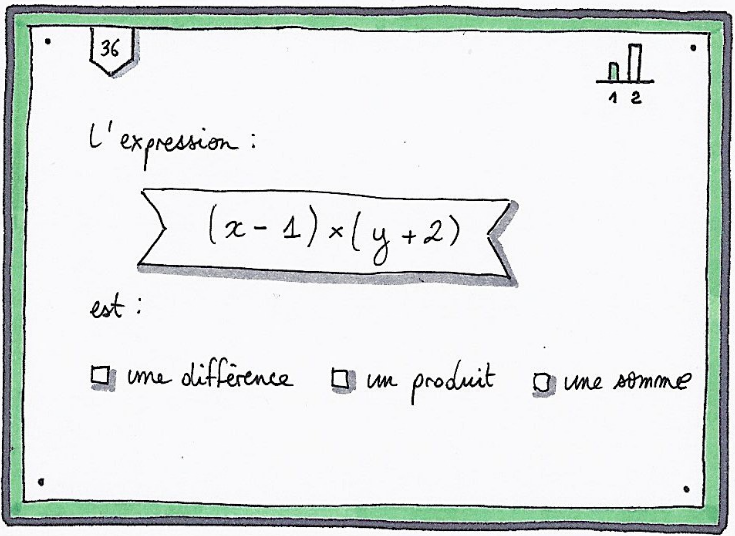 36
1 2
L'expression :
(x - 1) × (y + 2)
est :
une différence un produit une somme